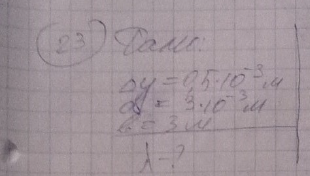 23 Дано:
Δy = 0,5·10⁻³ м
d = 3·10⁻³ м
l = 3 м
λ - ?